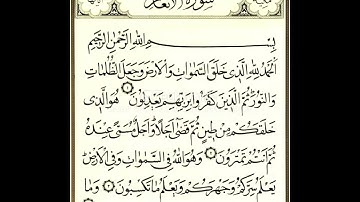 سورة الأنعام
بِسْمِ اللّٰهِ الرَّحْمٰنِ الرَّحِيمِ
اَلْحَمْدُ لِلّٰهِ الَّذِي خَلَقَ السَّمٰوَاتِ وَالْاَرْضَ وَجَعَلَ الظُّلُمَاتِ
وَالنُّورَ ثُمَّ الَّذِينَ كَفَرُوا بِرَبِّهِمْ يَعْدِلُونَ ۞ هُوَ الَّذِي
خَلَقَكُمْ مِنْ طِينٍ ثُمَّ قَضٰى اَجَلًا وَاَجَلٌ مُسَمًّى عِنْدَهُ
ثُمَّ اَنْتُمْ تَمْتَرُونَ ۞ وَهُوَ اللّٰهُ فِي السَّمٰوَاتِ وَفِي الْاَرْضِ
يَعْلَمُ سِرَّكُمْ وَجَهْرَكُمْ وَيَعْلَمُ مَا تَكْسِبُونَ ۞ وَمَا